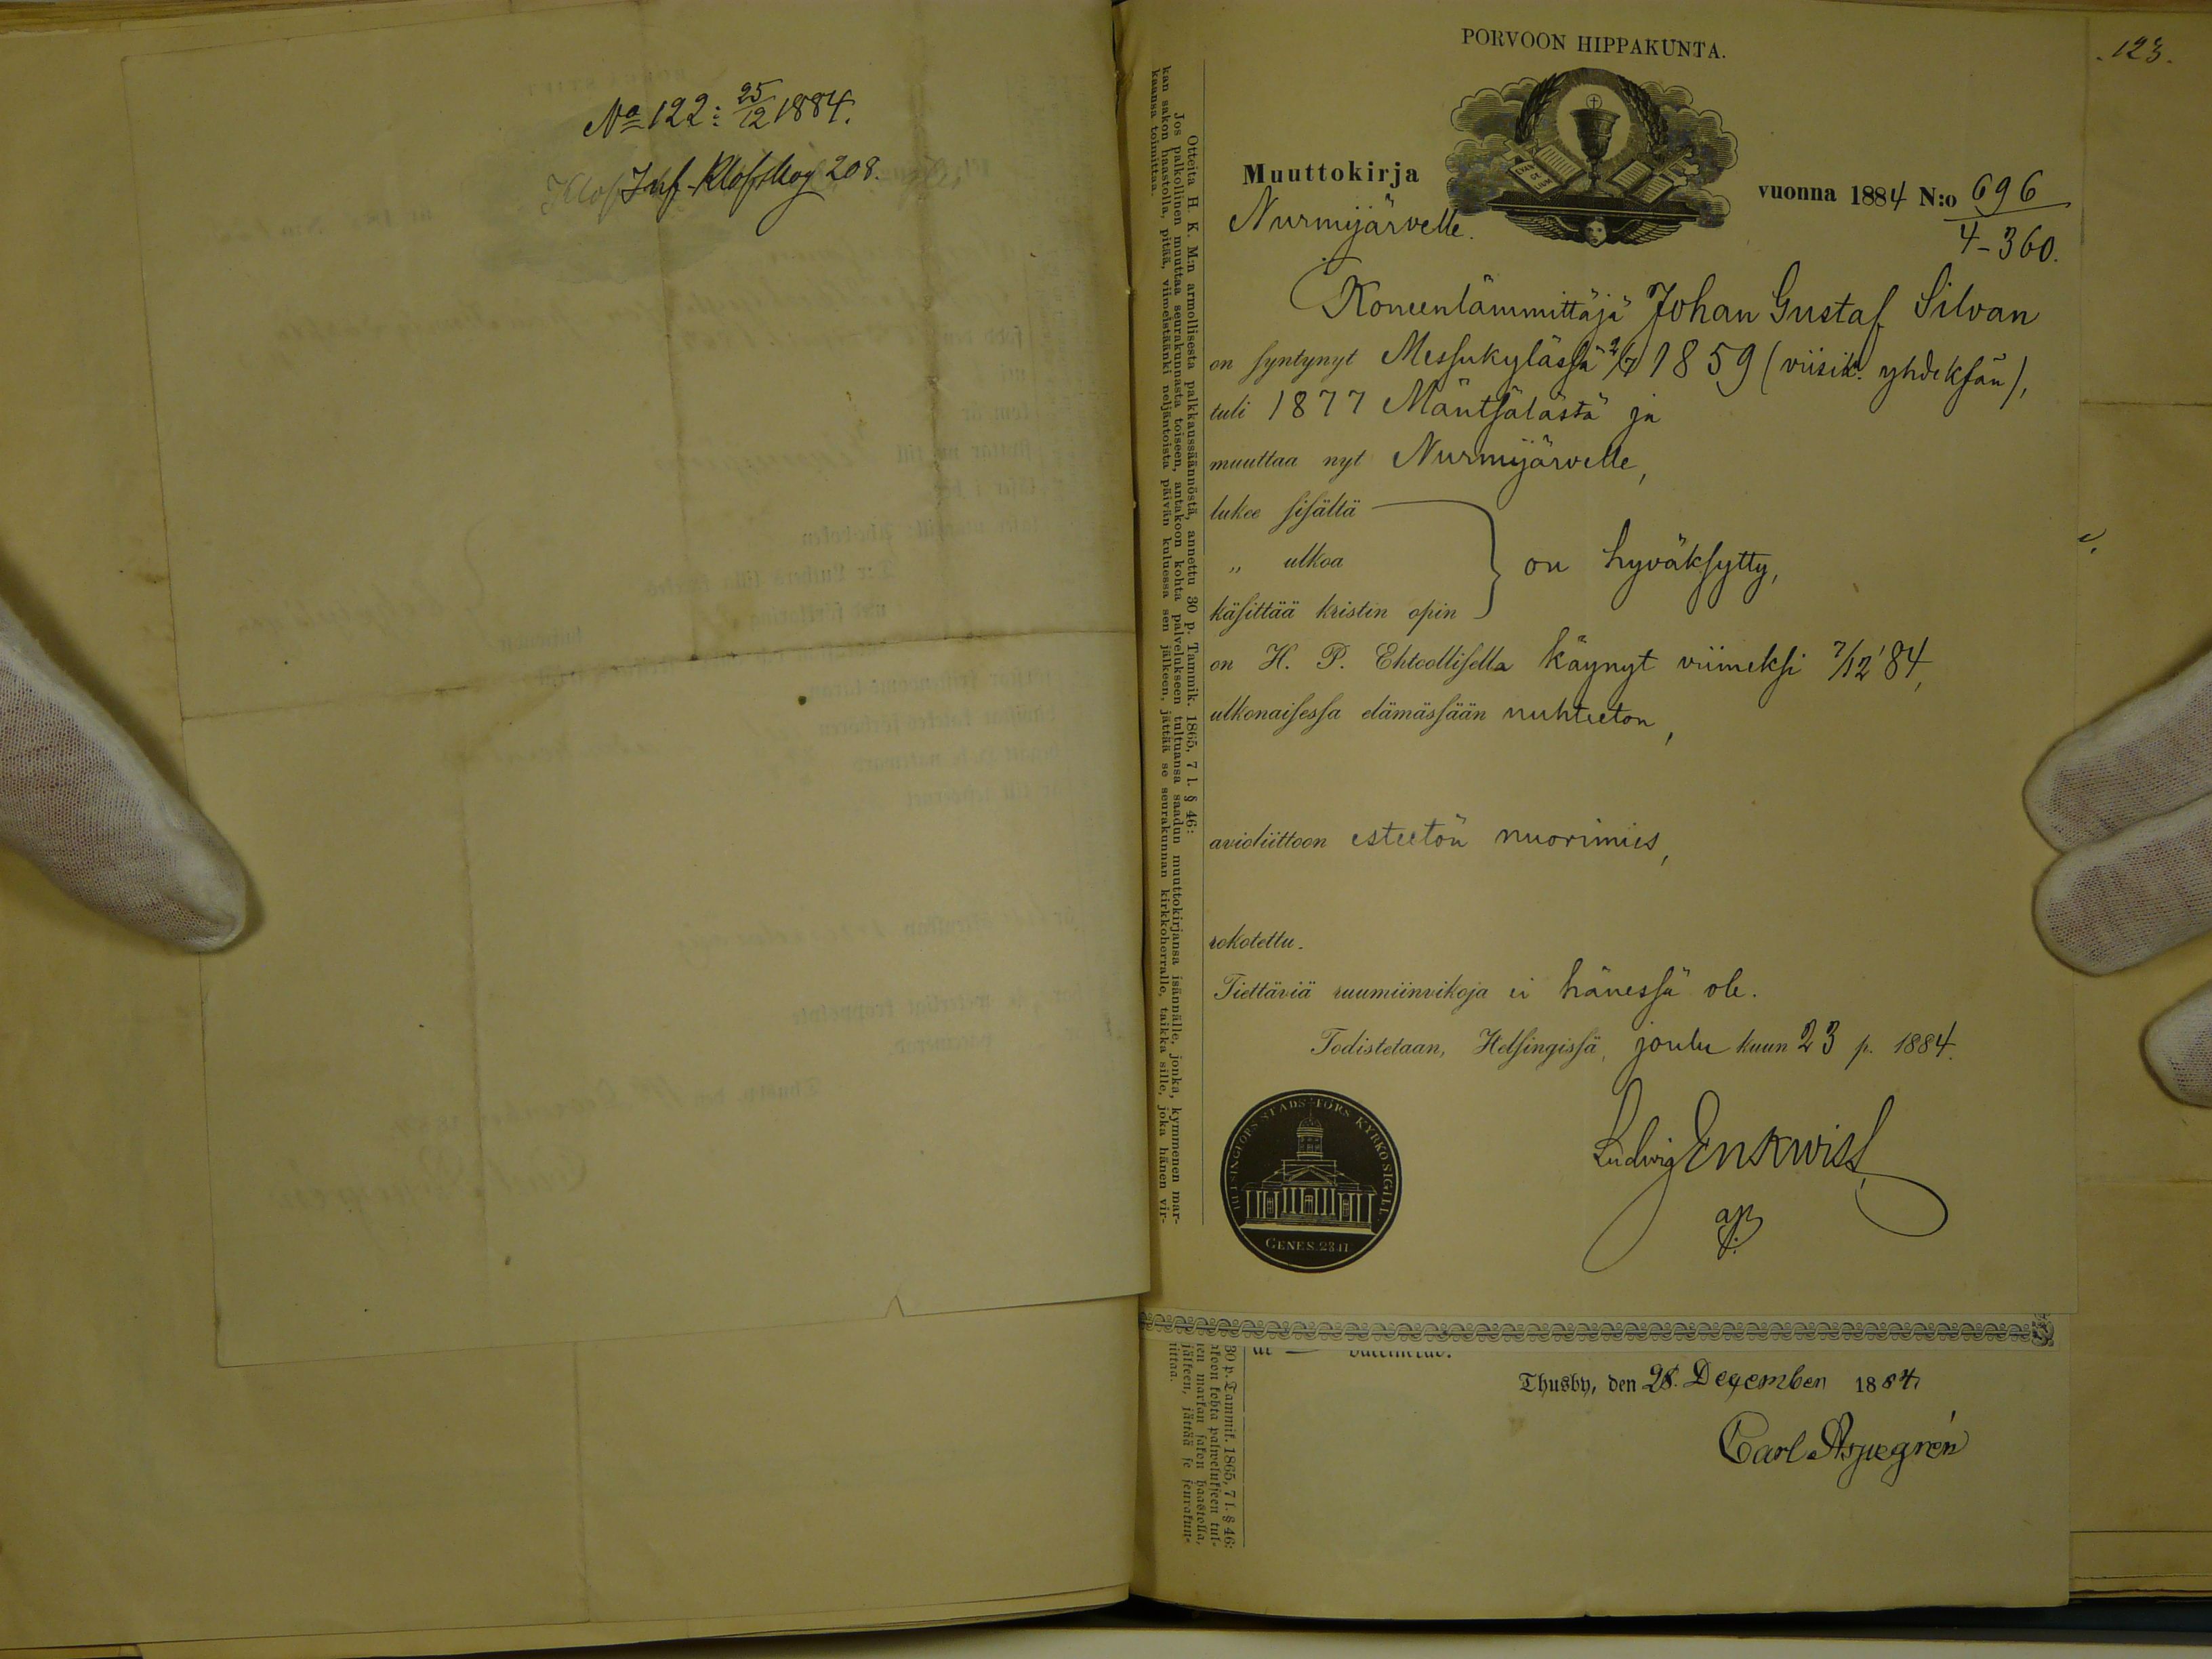 No 122: 25/12 1884.
Klof Inf. Klofskog 208.
PORVOON HIPPAKUNTA.
123.
Muuttokirja
vuonna 1884 N:o 696
Nurmijärvelle.
4-360.
Koneenlämmittäjä Johan Gustaf Silvan
on syntynyt Messukylässä 2/7 1859 (viisik. yhdeksän),
tuli 1877 Mäntsälästä ja
muuttaa nyt Nurmijärvelle,
lukee sisältä
„ ulkoa
on hyväksytty,
käsittää kristin opin
on H. P. Ehtoollisella käynyt viimeksi 7/12 '84,
ulkonaisessa elämässään nuhteeton,
avioliittoon esteetön nuorimies,
rokotettu.
Tiettäviä ruumiinvikoja ei hänessä ole.
Todistetaan, Helsingissä, joulu kuun 23 p. 1884.
Ludvig Enkwist
ap.
HELSINGFORS STADS FÖRS. KYRKOSIGILL.
GENES. 28.17
Otteita H. K. M:n armollisesta palkkaussäännöstä, annettu 30 p. Tammik. 1865, 7 l. § 46:
Jos palkollinen muuttaa seurakunnasta toiseen, antakoon kohta palvelukseen tultuansa saadun muuttokirjansa isännälle, jonka, kymmenen mar-
kan sakon haastolla, pitää, viimeistäänki neljäntoista päivän kuluessa sen jälkeen, jättää se seurakunnan kirkkoherralle, taikka sille, joka hänen vir-
kaansa toimittaa.
Thusby, den 28. December 1884
Carl Aspegrén
30 p. Tammik. 1865, 7 l. § 46:
akoon kohta palwelukseen tul-
en markan sakon haastolla,
jälkeen, jättää se seurakun-
ittaa.